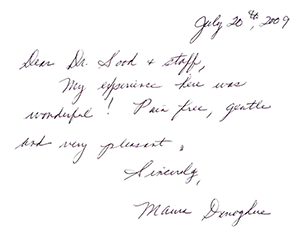 July 20th, 2009
Dear Dr. Sood & staff,
My experience here was
wonderful! Pain free, gentle
and very pleasant.
Sincerely,
Donoghue